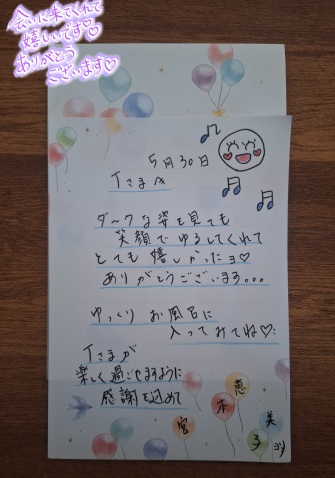 会いに来てくれて
嬉しいです♡
ありがとう
ございます♡
5月30日
Tさまへ
ダークな姿を見ても
笑顔でゆるしてくれて
とても嬉しかったヨ♡
ありがとうございます。。。
ゆっくり お風呂に
入ってみてね♡
Tさまが
楽しく過ごせますように
感謝を込めて
恵
美
宮
本
より